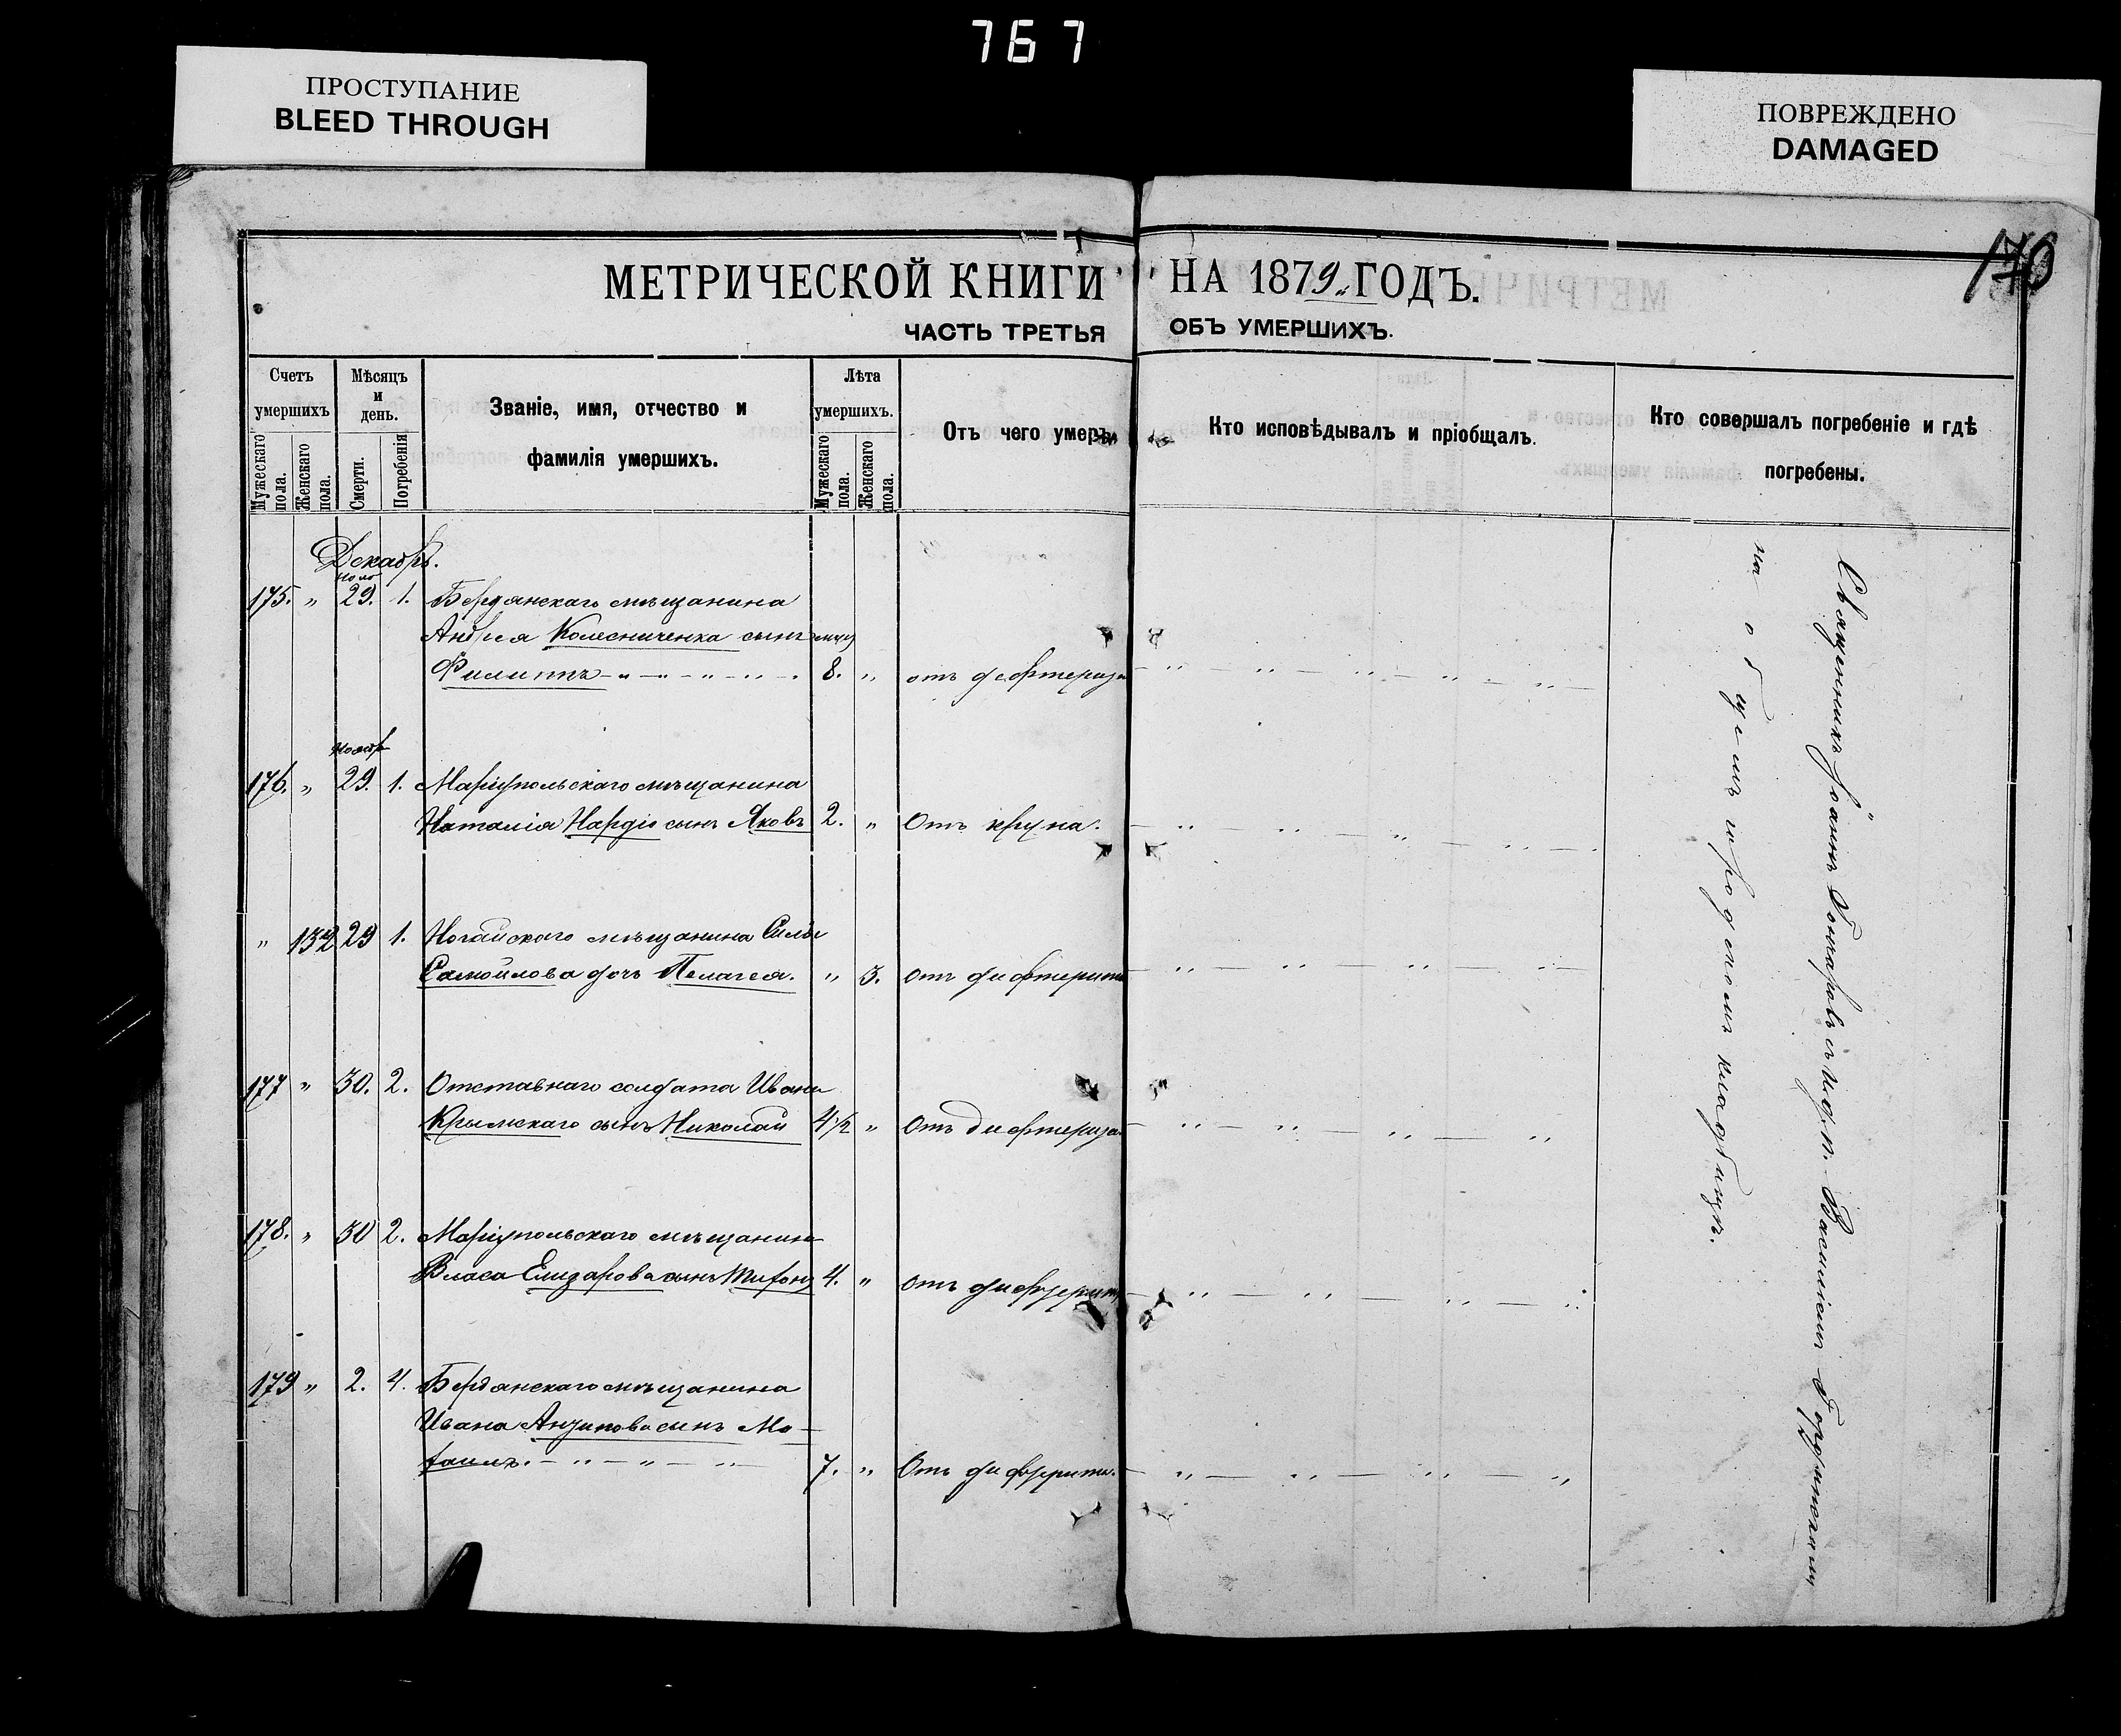 767
ПРОСТУПАНИЕ
BLEED THROUGH
ПОВРЕЖДЕНО
DAMAGED
МЕТРИЧЕСКОЙ КНИГИ НА 1879 ГОДЪ.
ЧАСТЬ ТРЕТЬЯ ОБЪ УМЕРШИХЪ.
Счетъ умершихъ
Мужескаго пола.
Женскаго пола.
Мѣсяцъ и день.
Смерти.
Погребенія
Званіе, имя, отчество и фамилія умершихъ.
Лѣта умершихъ.
Мужескаго пола.
Женскаго пола.
Отъ чего умеръ.
Кто исповѣдывалъ и пріобщалъ.
Кто совершалъ погребеніе и гдѣ погребены.
Декабрь.
175. " 29. 1. Бердянскаго мѣщанина
Андрея Колесниченка сынъ
Филиппъ 8. " отъ
Ноябр
176. " 29. 1. Маріупольскаго мѣщанина
Наталія сынъ Яковъ 2. " Отъ крупа.
" 132 29 1. Ногайскаго мѣщанина Силы
Самойлова дочь Пелагея. " 3. отъ дифтерита
177 " 30. 2. Отставнаго солдата Ивана
Крымскаго сынъ Николай 4 1/2 " Отъ
178. " 30 2. Маріупольскаго мѣщанина
Власа Елизарова сынъ 4. " отъ
179 " 2. 4. Бердянскаго мѣщанина
Ивана сынъ
7. " Отъ
Священникъ Іоаннъ Гончаровъ съ и. д. п. Василіемъ
на общемъ городскомъ кладбищѣ.